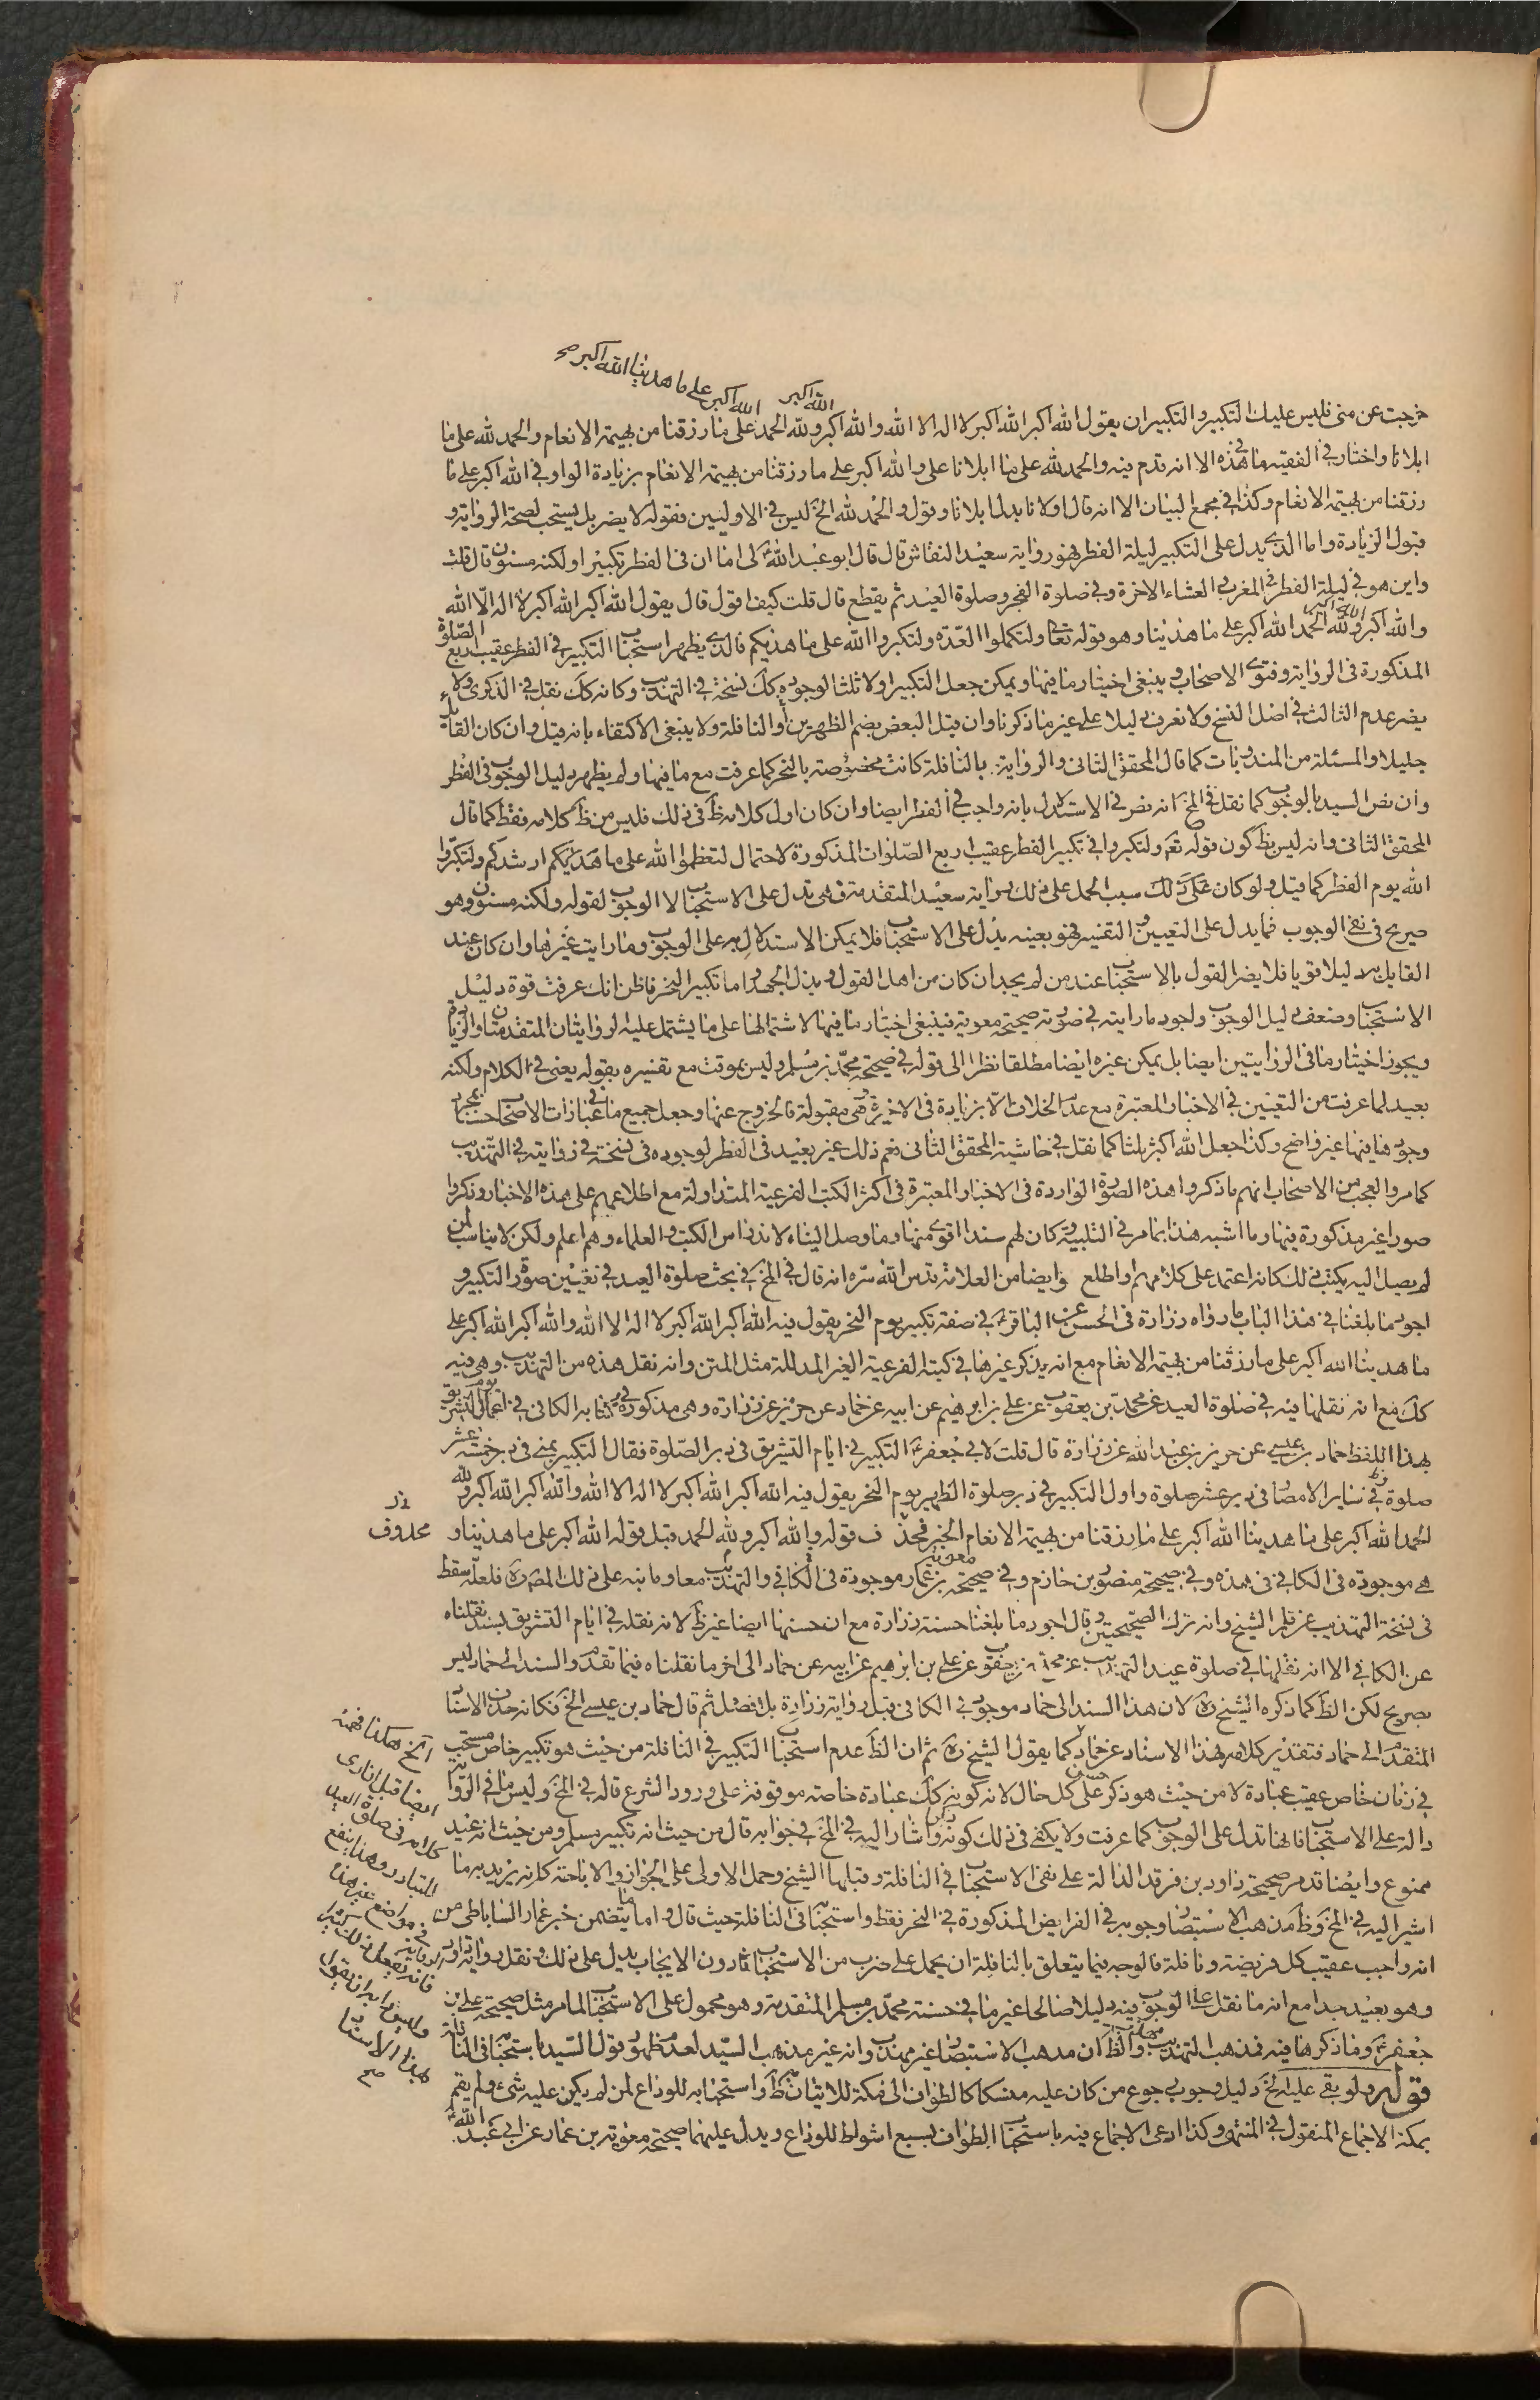 الله اكبر على ما هدينا الله اكبر صح
الله اكبر
خرجت عن منى فليس عليك التكبير والتكبير ان يقول الله اكبر الله اكبر لا اله الا الله والله اكبر ولله الحمد على ما رزقنا من بهيمة الانعام والحمد لله على ما
ابلانا واختار في الفقيه ما في هذه الا انه قدم فيه والحمد لله على ما ابلانا على والله اكبر على ما رزقنا من بهيمة الانعام بزيادة الواو في الله اكبر على ما
رزقنا من بهيمة الانعام وكذا في مجمع البيان الا انه قال اولانا بدل ابلانا وقول والحمد لله الخ ليس في الاوليين فقوله لا يضر بل يستحب لصحة الرواية و
قبول الزيادة واما الذي يدل على التكبير ليلة الفطر فهو رواية سعيد النقاش قال قال ابو عبد الله ع لى اما ان في الفطر تكبيرا ولكنه مسنون قال قلت
واين هو في ليلة الفطر في المغرب والعشاء الاخرة وفي صلوة الفجر وصلوة العيد ثم يقطع قال قلت كيف اقول قال يقول الله اكبر الله اكبر لا اله الا الله
والله اكبر ولله الحمد الله اكبر على ما هدينا وهو قوله تعا ولتكملوا العدة ولتكبروا الله على ما هديكم فالذي يظهر استحباب التكبير في الفطر عقيب اربع الصلوة
المذكورة في الرواية وفتوى الاصحاب وينبغي اختيار ما فيها ويمكن جعل التكبير اولا ثلثا لوجوده كك نسخة في التهذيب وكانه كك نقل في الذكرى ولا
يضر عدم الثالث في اصل النسخ ولا نعرف دليلا على غير ما ذكرنا وان قيل البعض بضم الظهرين أو النافلة ولا ينبغي الاكتفاء بانه قيل وان كان القائل
جليلا والمسئلة من المندوبات كما قال المحقق الثاني والرواية بالنافلة كانت مخصوصة بالنحر كما عرفت مع ما فيها ولم يظهر دليل الوجوب في الفطر
وان نص السيد بالوجوب كما نقل في المخ انه نص في الاستدلال بانه واجب في الفطر ايضا وان كان اول كلامه ظ في ذلك فليس من ظ كلامه فقط كما قال
المحقق الثاني وانه ليس بظ كون قوله تع ولتكبروا في تكبير الفطر عقيب اربع الصلوات المذكورة لاحتمال لتعظموا الله على ما هديكم ارشدكم ولتكبروا
الله يوم الفطر كما قيل ولو كان على ذلك سبب الحمل على ذلك رواية سعيد المتقدمة فهي تدل على الاستحباب لا الوجوب لقوله ولكنه مسنون وهو
صريح في نفي الوجوب فما يدل على التعيين والتفسير فهو بعينه يدل على الاستحباب فلا يمكن الاستدلال به على الوجوب وما رايت غيرها وان كان عند
القايل به دليلا قويا فلا يضر القول بالاستحباب عند من لم يجد ان كان من اهل القول وبذل الجهد واما تكبير النحر فاظن انك عرفت قوة دليل
الاستحباب وضعف دليل الوجوب واجود ما رايته في صورته صحيحة معوية فينبغي اختيار ما فيها لاشتمالها على ما يشتمل عليه الروايتان المتقدمتان والزيادة
ويجوز اختيار ما في الروايتين ايضا بل يمكن غيره ايضا مطلقا نظرا الى قوله في صحيحة محمد بن مسلم وليس بموقت مع تفسيره بقوله يعني في الكلام ولكنه
بعيد لما عرفت من التعيين في الاخبار المعتبرة مع عدم الخلاف الا بزيادة في الاخيرة وهي مقبولة فالخروج عنها وجعل جميع ما في عبارات الاصحاب حسنا بمجرد
وجودها فيها غير واضح وكذا جعل الله اكبر ثلثا كما نقل في حاشية المحقق الثاني نعم ذلك غير بعيد في الفطر لوجوده في نسخة في رواية في التهذيب
كما مر والعجب من الاصحاب انهم ما ذكروا هذه الصورة الواردة في الاخبار المعتبرة في اكثر الكتب الفرعية المتداولة مع اطلاعهم على هذه الاخبار وذكروا
صورا غير مذكورة فيها وما اشبه هذا بما مر في التلبية وكان لهم سندا اقوى منها وما وصل الينا لاندراس الكتب والعلماء وهم اعلم ولكن لا يناسب لمن
لم يصل اليه يكتب ذلك كانه اعتمد على كلامهم او اطلع وايضا من العلامة قدس الله سره انه قال في المخ في بحث صلوة العيد في تعيين صورة التكبير و
اجود ما بلغنا في هذا الباب ما رواه زرارة في الحسن عن الباقر ع في صفة تكبير يوم النحر يقول فيه الله اكبر الله اكبر لا اله الا الله والله اكبر الله اكبر على
ما هدينا الله اكبر على ما رزقنا من بهيمة الانعام مع انه يذكر غيرها في كتبه الفرعية الغير المدللة مثل المتن وانه نقل هذه من التهذيب وهي فيه
كك مع انه نقلها فيه في صلوة العيد عن محمد بن يعقوب عن علي بن ابرهيم عن ابيه عن حماد عن حريز عن زرارة وهي مذكورة في كتابه الكافي في اعمال يوم التشريق
بهذا اللفظ حماد بن عيسى عن حريز بن عبد الله عن زرارة قال قلت لابي جعفر ع التكبير في ايام التشريق في دبر الصلوة فقال التكبير بمنى في دبر خمس عشر
صلوة وفي ساير الامصار في دبر عشر صلوة واول التكبير في دبر صلوة الظهر يوم النحر يقول فيه الله اكبر الله اكبر لا اله الا الله والله اكبر الله اكبر ولله
الحمد الله اكبر على ما هدينا الله اكبر على ما رزقنا من بهيمة الانعام الخبر فحذف قوله والله اكبر ولله الحمد قبل قوله الله اكبر على ما هدينا و
محذوف
هي موجودة في الكافي في هذه وفي صحيحة منصور بن حازم وفي صحيحة معوية بن عمار موجودة في الكافي والتهذيب معا وما نبه على ذلك المصره فلعله سقط
في نسخة التهذيب عن قلم الشيخ وانه ترك الصحيحتين وقال اجود ما بلغنا حسنة زرارة مع ان حسنها ايضا غير ظ لانه نقله في ايام التشريق بسند نقلناه
عن الكافي الا انه نقلها في صلوة عيد التهذيب عن محمد بن يعقوب عن علي بن ابرهيم عن ابيه عن حماد الى اخر ما نقلناه فيما تقدم والسند الى حماد ليس
بصريح لكن الظ كما ذكره الشيخ ره لان هذا السند الى حماد موجود في الكافي قبل رواية زرارة بلا فصل ثم قال حماد بن عيسى الخ فكانه حذف الاسناد
المتقدم الى حماد فتقدير كلامه بهذا الاسناد عن حماد كما يقول الشيخ ره ثم ان الظ عدم استحباب التكبير في النافلة من حيث هو تكبير خاص مستحب
في زمان خاص عقيب عبادة لا من حيث هو ذكر حسن على كل حال لانه كونه كك عبادة خاصة موقوفة على ورود الشرع قاله في المخ وليس ما في الرواية
دالة على الاستحباب فانها تدل على الوجوب كما عرفت ولا يكفي في ذلك كونه ذكرا واشار اليه في المخ في جوابه قال من حيث انه تكبير مسلم ومن حيث انه عيد
ممنوع وايضا قد مر صحيحة داود بن فرقد الدالة على نفي الاستحباب في النافلة وقبلها الشيخ وحمل الاولى على الجواز والاباحة كانه يريد به ما
اشير اليه في المخ وظ مذهب الاستبصار وجوبه في الفرايض المذكورة في النحر فقط واستحبابه في النافلة حيث قال واما ما يتضمن خبر عمار الساباطي من
انه واجب عقيب كل فريضة ونافلة فالوجه فيما يتعلق بالنافلة ان يحمل على ضرب من الاستحباب دون الايجاب يدل على ذلك ونقل رواية داود
وهو بعيد جدا مع انه ما نقل على الوجوب فيه دليلا صالحا غير ما في حسنة محمد بن مسلم المتقدمة وهو محمول على الاستحباب لما مر مثل صحيحة علي بن
جعفر ع وما ذكرها فيه فمذهب التهذيب والظ ان مذهب الاستبصار غير مهذب وانه غير مذهب السيد لعدم ظهور قول السيد باستحبابه في النافلة
قوله ولو بقي عليه الخ دليل وجوب رجوع من كان عليه منسكا كالطواف الى مكة للاتيان به ظ واستحبابه للوداع لمن لم يكن عليه شئ ولم يقم
بمكة الاجماع المنقول في المنتهى وكذا ادعى الاجماع فيه باستحباب الطواف بسبع اشواط للوداع ويدل عليهما صحيحة معوية بن عمار عن ابي عبد الله ع